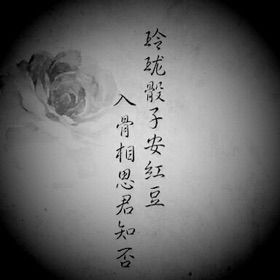 玲瓏骰子安紅豆
入骨相思君知否